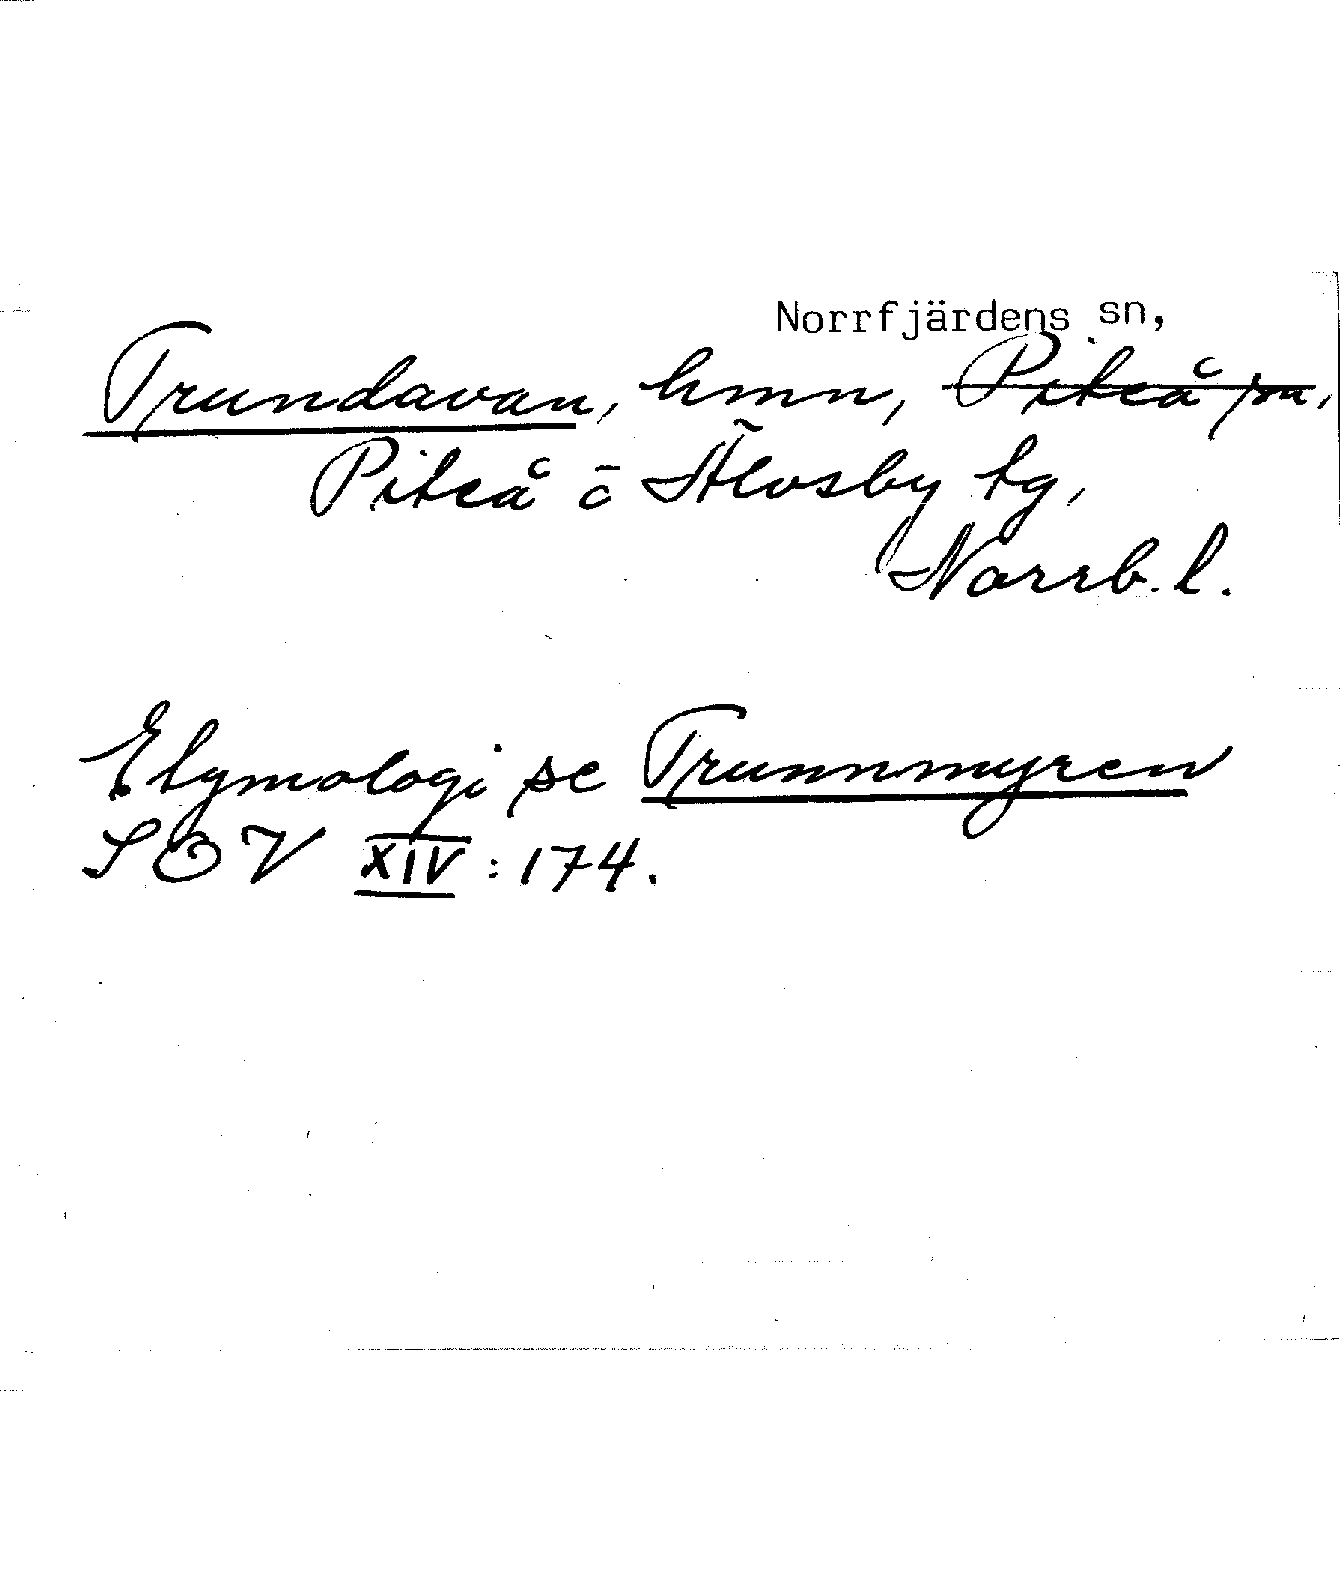 Norrfjärdens sn,
Trundavan, hmn, Piteå sn,
Piteå o Älvsby tg,
Norrb. l.
Etymologi se Trunnmyren
SOV XIV : 174.